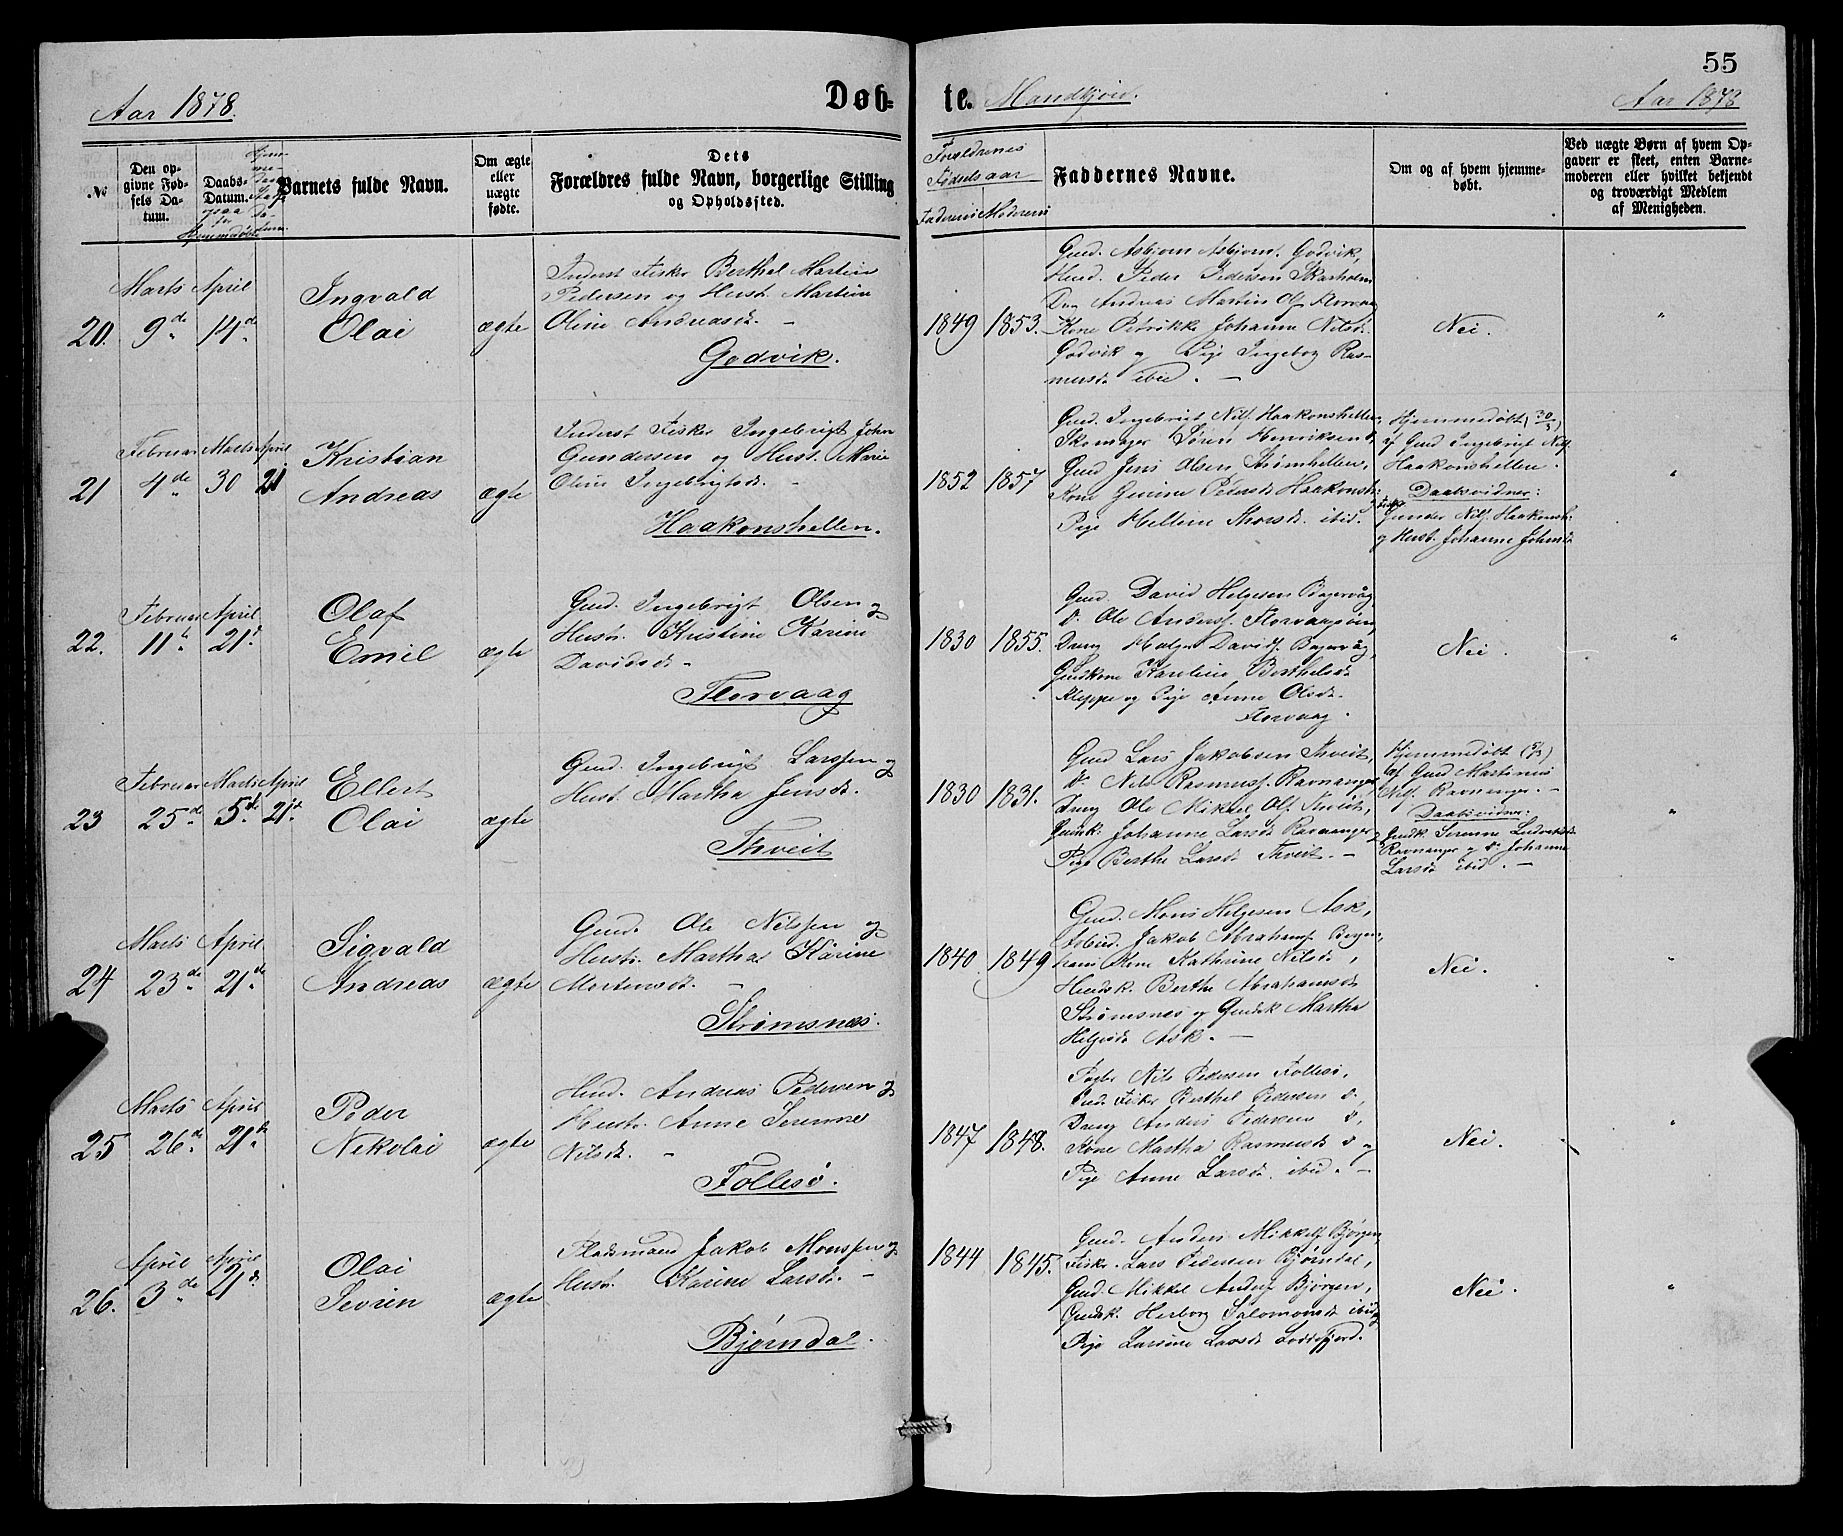 55
Aar 1878.
Døb-
te. Mandkjøn.
Aar 1878
№
Den opgivne Fødsels Datum.
Daabs-Datum.
Barnets fulde Navn.
Om ægte eller uægte fødte.
Dets Forældres fulde Navn, borgerlige Stilling og Opholdssted.
Forældrenes Fødselsaar
Faderens Moderens
Faddernes Navne.
Om og af hvem hjemmedøbt.
Ved uægte Børn af hvem Opgaven er skeet, enten Barnemoderen eller hvilket bekjendt og troværdigt Medlem af Menigheden.
20.
Marts 9de
April 14de
Ingvald
Olai
ægte
Inderst Fisker Berthel Martin
Pedersen og Hust. Martine
Oline Andreasd. -
Godvik.
1849 1853.
Gmd. Asbjørn Asbjørns. Godvik,
Hmd. Peder Pedersen Skarholm
Dng Andreas Martin Ols. Florvaag
Kone Petrikke Johanne Nilsd.
Godvik og Pige Ingeborg Ras-
musd. ibid. -
Nei.
"
21
Februar 4de
Marts 30
April 21
Kristian
Andreas
ægte
Inderst Fisker Ingebrigt John
Gundersen og Hust. Marie
Oline Ingebrigtsd. -
Haakonshellen.
1852 1857
Gmd. Ingebrigt Nils. Haakonshellen,
Skomager Søren Henriksen d.
Gmd Jens Olsen Strømhellen,
Kone Pedersd. Haakonsh.
Pige Helline Thorsd. ibid.
Hjemmedøbt (30/3)
af Gmd Ingebrigt Nils.
Haakonshellen.
Daabsvidner:
Gunder Nils. Haakonsh.
og Hust. Johanne Johnsd.
"
22.
Februar 11te
April 21de
Olaf
Emil
ægte
Gmd. Ingebrigt Olsen og
Hustr. Kristine Karine
Davidsd. -
Florvaag
1830 1855.
Gmd. David Helgesen
Do Ole Anders. Florvaagøen,
Dreng Helge Davids.
Gmdkone Karoline Berthelsd.
Kleppe og Pige Anne Olsd.
Florvaag.
Nei.
"
23
Februar 25de
Marts 5te
April 21de
Ellert
Olai
ægte
Gmd. Ingebrigt Larssen og
Hust. Martha Jensd.
Thveit
1830 1831.
Gmd Lars Jakobsen Thveit,
Do Nils Rasmuss. Ravnanger,
Dreng Ole Mikkel Ols. Thveit,
Gmdsk. Johanne Larsd. Ravnanger,
Pige Berthe Larsd. Thveit. -
Hjemmedøbt (5/3)
af Gmd Martinus
Nils. Ravnanger. -
Daabsvidner:
Gmdk Serenne Ludviksd.
Ravnanger og Do Johanne
Larsd. ibid. -
"
24
Marts 23de
April 21de
Sigvald
Andreas
ægte
Gmd. Ole Nilssen og
Hustr. Martha Karine
Mortensd. -
Strømsnæs.
1840 1849
Gmd. Mons Helgesen Ask,
Arbeid. Jakob Abrahams. Bergen,
hans Kone Kathrine Nilsd.,
Hmdsk. Berthe Abrahamsd.
Strømsnes og Gmdsk Martha
Helgesd. Ask. -
Nei.
"
25
Marts 26de
April 21de
Peder
Nikolai
ægte
Hmd. Andreas Pedersen og
Hustr. Anne Serenne
Nilsd. -
Follesø.
1847 1848.
Nils Pedersen Follesø,
Fisker Berthel Pedersen d.,
Dreng Anders Pedersen d.,
Kone Martha Rasmusd. d. og
Pige Anne Larsd. ibid. -
Nei.
"
26.
April 3de
April 21de
Olai
Sevrin
ægte
Pladsmand Jakob Monssen og
Hustr. Karine Larsd. -
Bjørndal.
1844 1845.
Gmd. Anders Mikkels. Bjørgen,
Fisker Lars Pedersen Bjørndal,
Gmd. Mikkel Anders. Bjørgen,
Gmdsk. Herborg Salomonsd. ibid og
Pige Larsine Larsd. Loddefjord.
Nei.
"